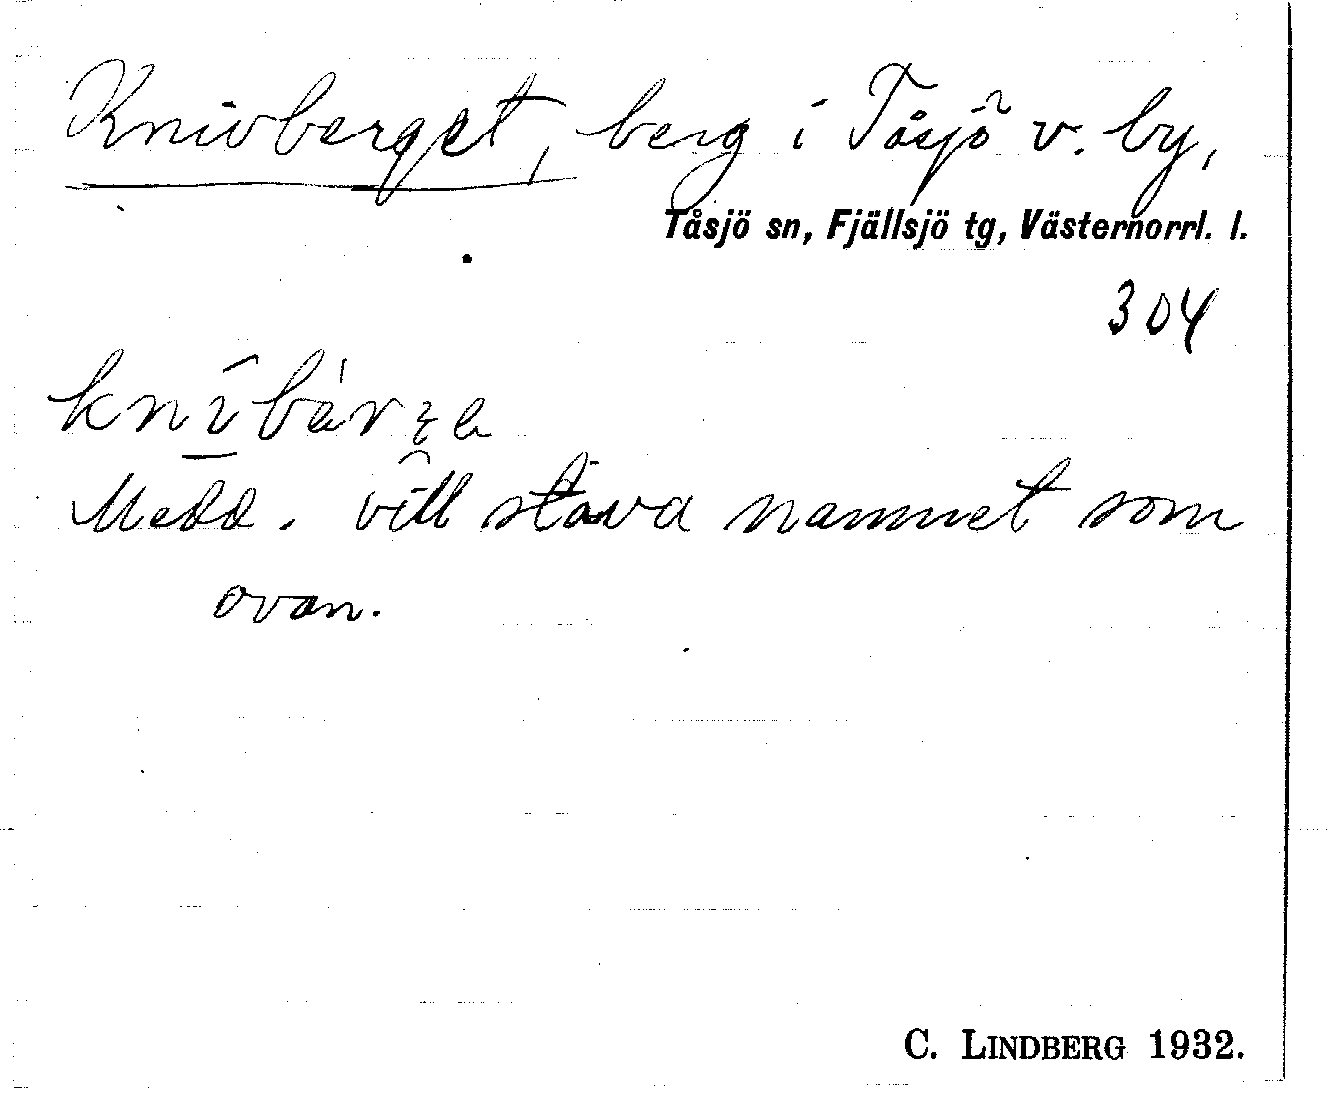 Knivberget, berg i Tåsjö v. by,
Tåsjö sn, Fjällsjö tg, Västernorrl. l.
304
Medd. vill stava namnet som
ovan.
C. LINDBERG 1932.